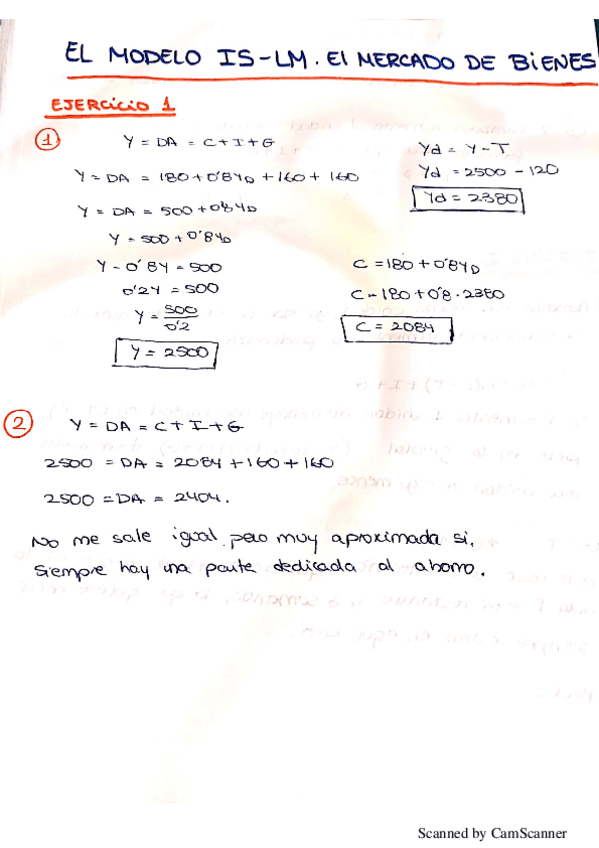 EL MODELO IS-LM. El MERCADO DE BIENES
EJERCICIO 1
1
Y = DA = C+I+G
Y = DA = 180+0'8YD +160+160
Y = DA = 500+0'8YD
Y = 500+0'8YD
Y - 0'8Y = 500
0'2Y = 500
Y = 500/0'2
Y = 2500
Yd = Y-T
Yd = 2500 - 120
Yd = 2380
C = 180 + 0'8YD
C = 180 + 0'8 · 2380
C = 2084
2
Y = DA = C+I+G
2500 = DA = 2084+160+160
2500 = DA = 2404.
No me sale igual, pero muy aproximada si.
Siempre hay una parte dedicada al ahorro.
Scanned by CamScanner